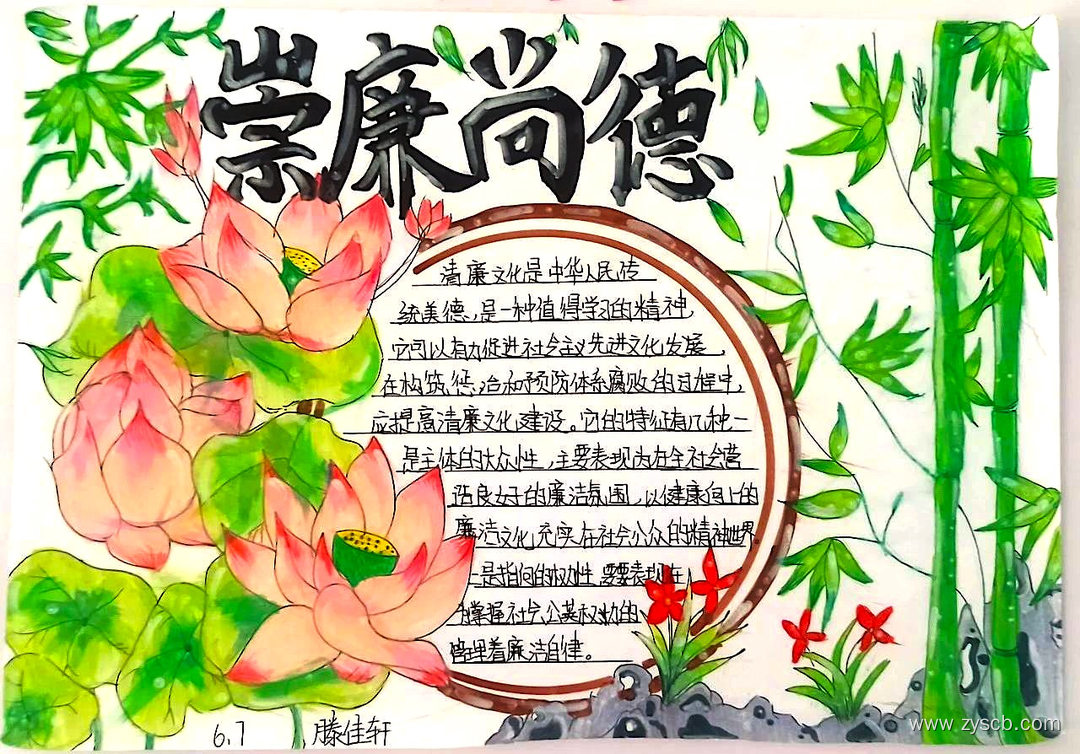 崇廉尚德
清廉文化是中华人民传
统美德,是一种值得学习的精神,
它可以有力促进社会主义先进文化发展,
在构筑惩治和预防体系腐败的过程中,
应提高清廉文化建设。它的特征有几种一
是主体的大众性,主要表现为在全社会营
造良好的廉洁氛围,以健康向上的
廉洁文化充实在社会公众的精神世界
二是指向的 性 要表现在
掌握社会公共权 的
管理着廉洁自律。
6.7 滕佳轩
www.zyscb.com